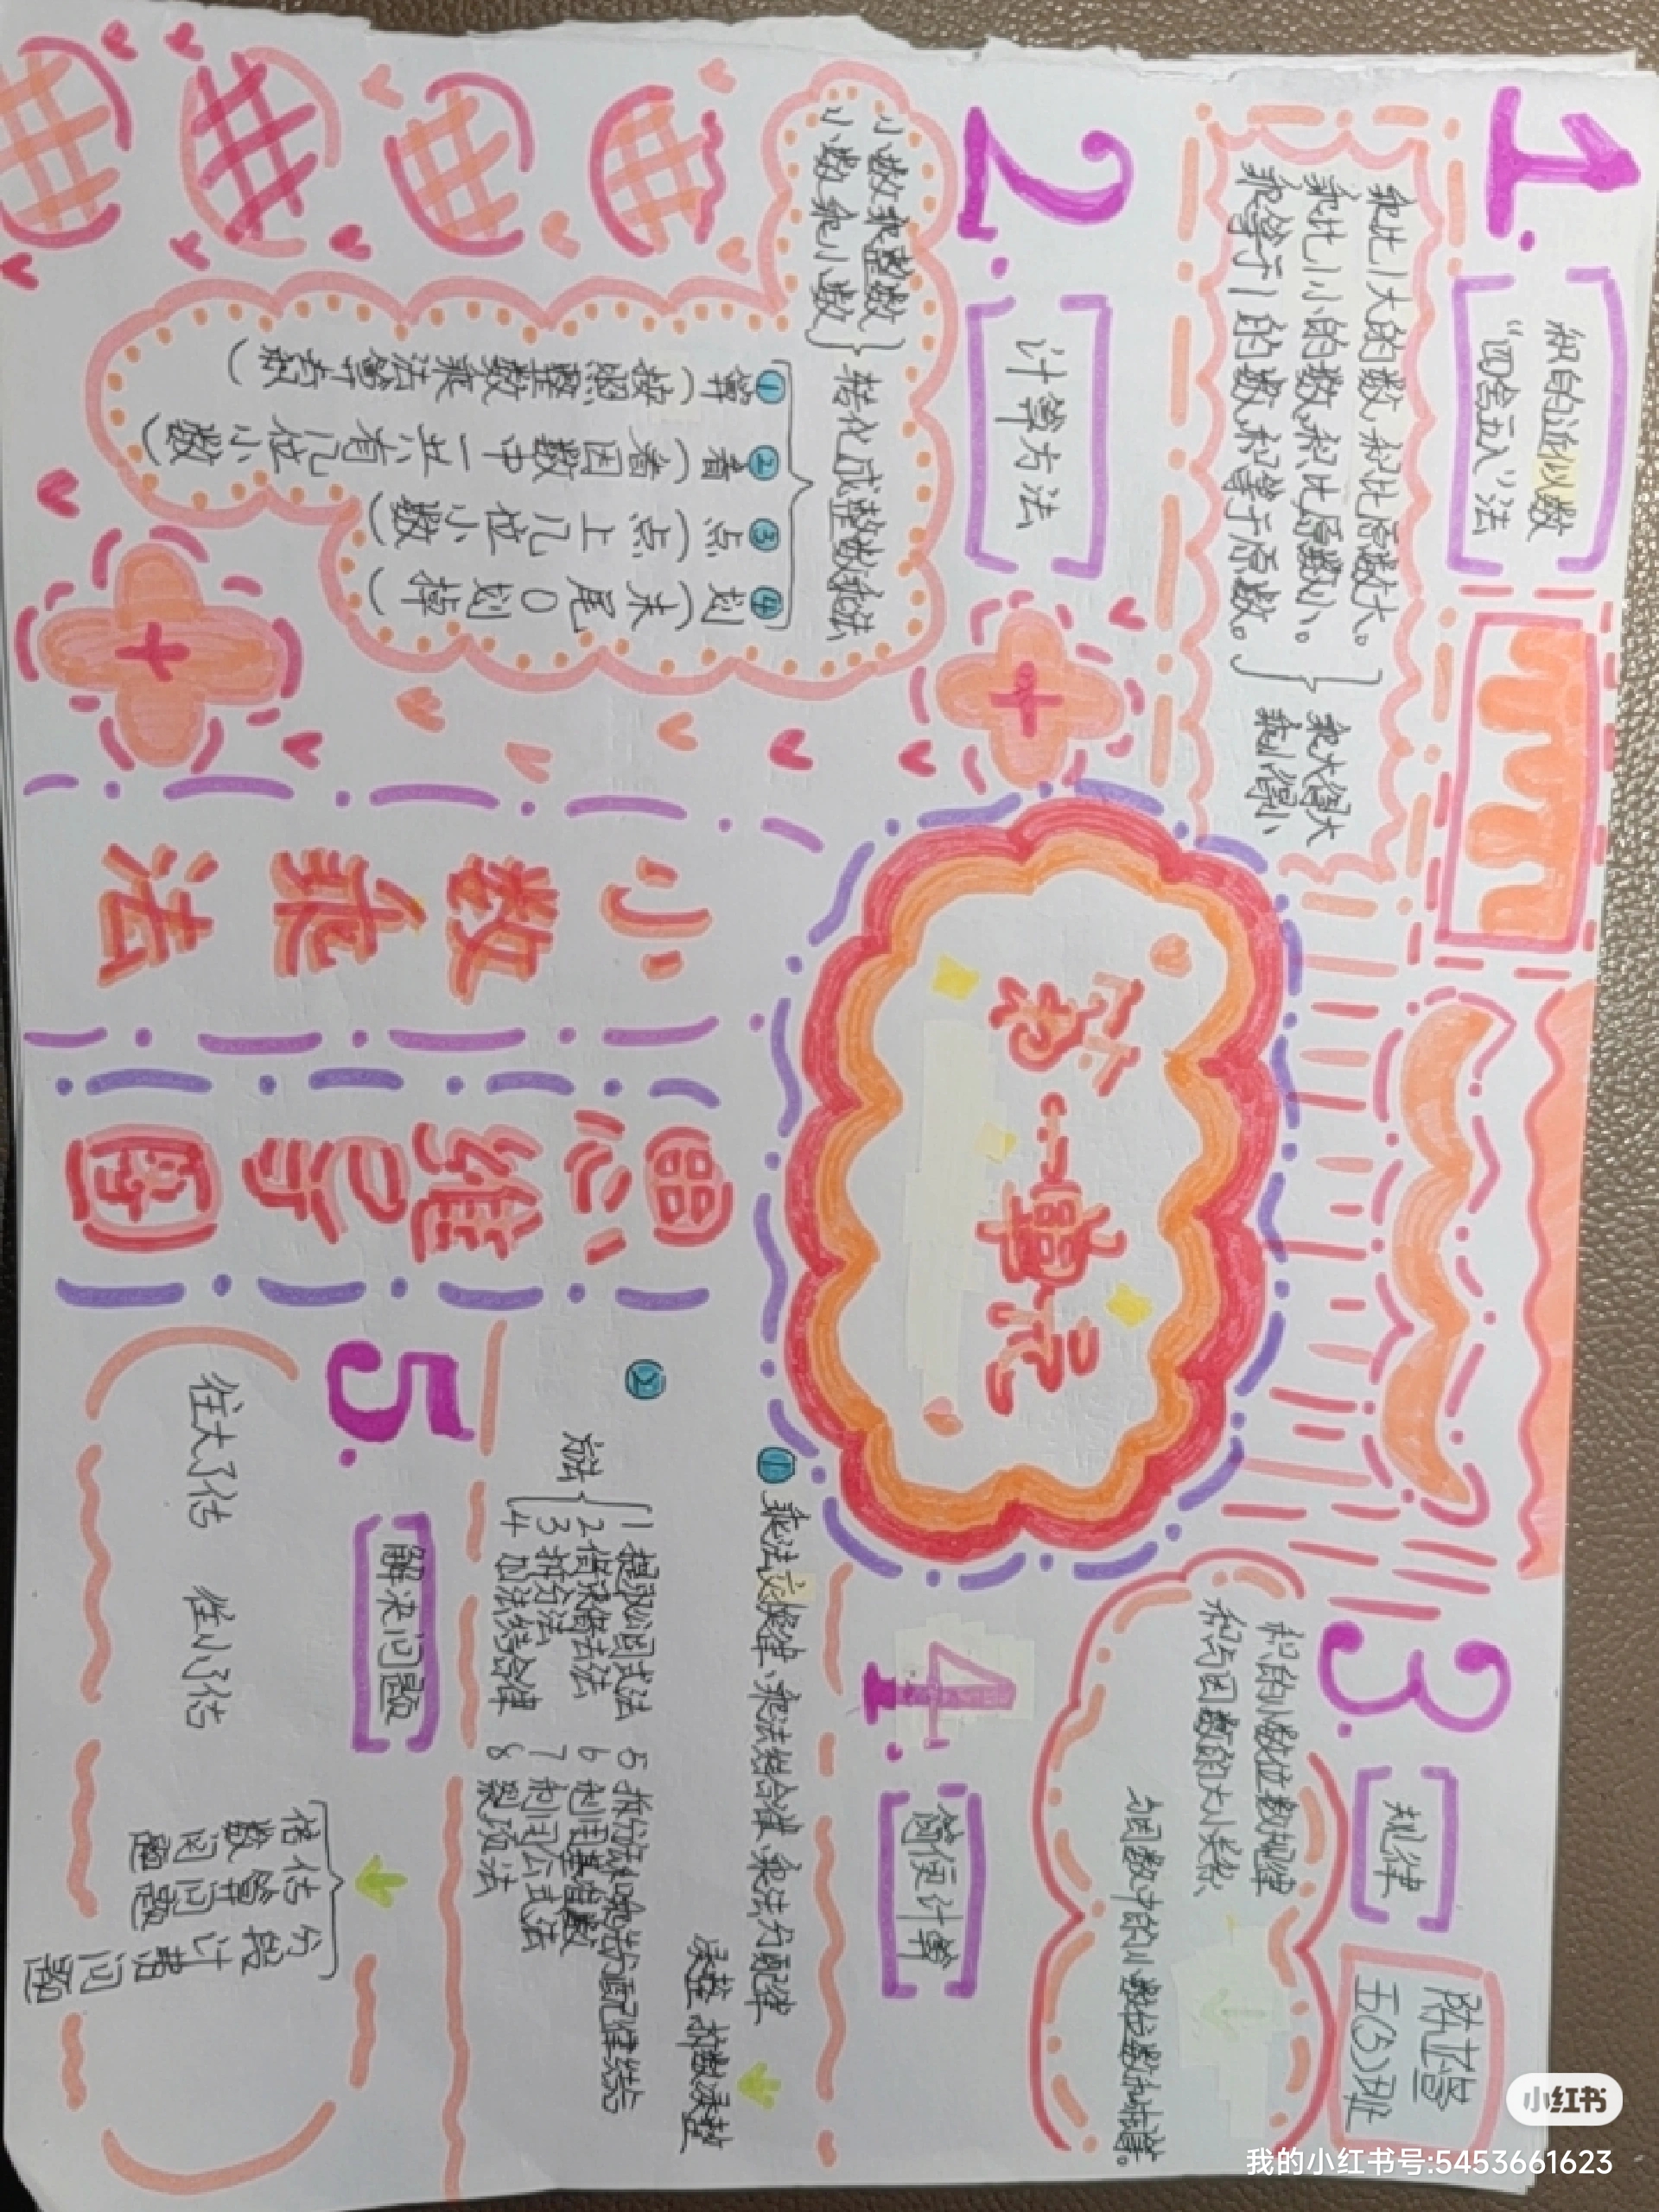 1.
积的近似数
"四舍五入"法
乘比1大的数,积比原数大。
乘比1小的数,积比原数小。
乘等于1的数,积等于原数。
乘大得大
乘小得小
2.
计算方法
小数乘整数
小数乘小数
转化成整数乘法
①算(按照整数乘法算有积)
②看(看因数中一共有几位小数)
③点(点上几位小数)
④划(末尾0划掉)
第一单元
小数乘法
思维导图
3.
规律
积的小数位数规律
积与因数的大小关系
与因数中的小数位数和相等。
陈
五(5)班
4.
简便计算
①乘法交换律、乘法结合律、乘法分配律
凑整 拆数凑整
②
方法
1 提取公因式法
2 借来借去法
3 拆分法
4 加法结合律
5 拆分法和乘法分配律结合
6 利用基准数
7 利用公式法
8 裂项法
5.
解决问题
往大了估
往小了估
倍数问题
估算问题
分段计费问题
小红书
我的小红书号:5453661623